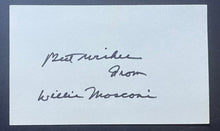 Best Wishes
From
Willie Mosconi